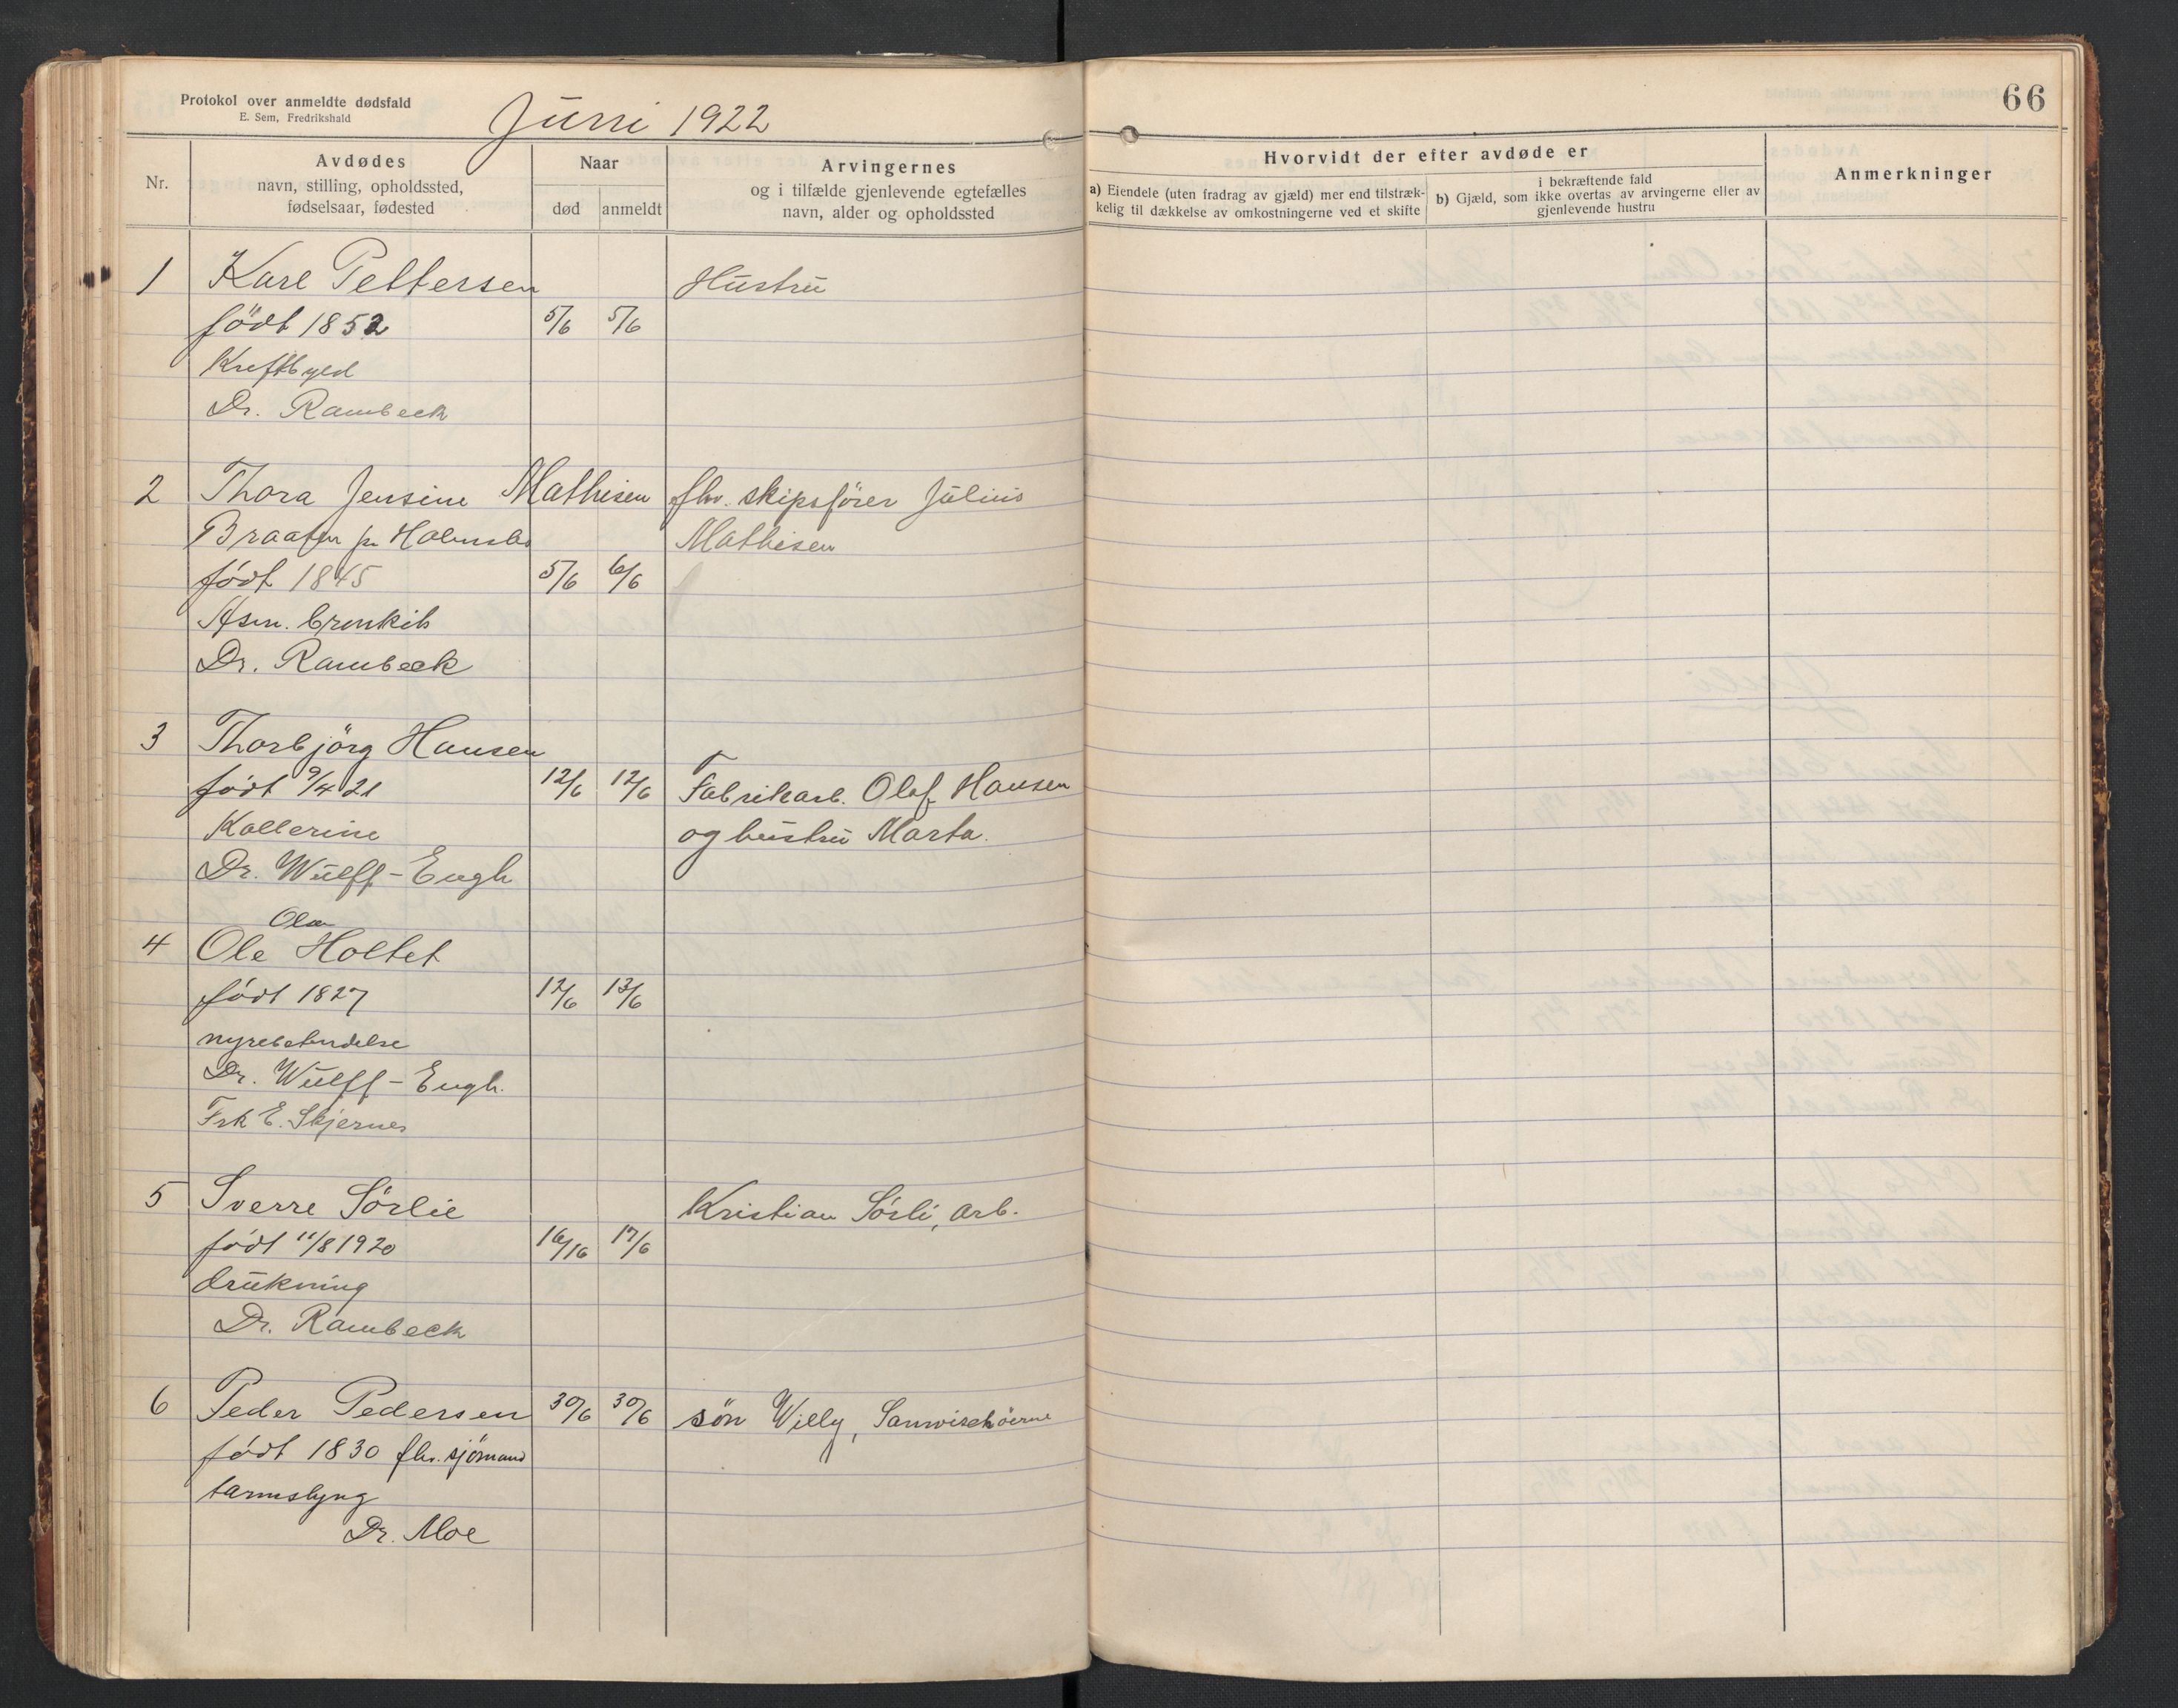 Protokol over anmeldte dødsfald
E. Sem, Fredrikshald
Juni 1922
66
Nr.
Avdødes
navn, stilling, opholdssted,
fødselsaar, fødested
Naar
død
anmeldt
Arvingernes
og i tilfælde gjenlevende egtefælles
navn, alder og opholdssted
Hvorvidt der efter avdøde er
a) Eiendele (uten fradrag av gjæld) mer end tilstræk-
kelig til dækkelse av omkostningerne ved et skifte
i bekræftende fald
b) Gjæld, som ikke overtas av arvingerne eller av
gjenlevende hustru
Anmerkninger
1 Karl Pettersen Hustru
født 1852 5/6 5/6
Kreftbyld
Dr. Rambeck
2 Thora Jensine Mathisen fhv. skipsfører Julius
Braaten pr Holmsbo Mathisen
født 1845 5/6 6/6
Dr. Rambeck
3 Thorbjörg Hansen
født 9/4 21 12/6 12/6 Fabrikarb. Olaf Hansen
Kollerine og hustru Marta.
Dr. Wulff-Engh
Olsen
4 Ole Holtet
født 1827 12/6 13/6
nyrebetendelse
Dr. Wulff-Engh.
Frk E. Skjernes
5 Sverre Sörlie Kristian Sörli, arb.
født 11/8 1920 16/16 17/6
drukning
Dr. Rambeck
6 Peder Pedersen 30/6 30/6 sön Willy,
født 1830 fhv. sjömand
tarmslyng
Dr. Moe